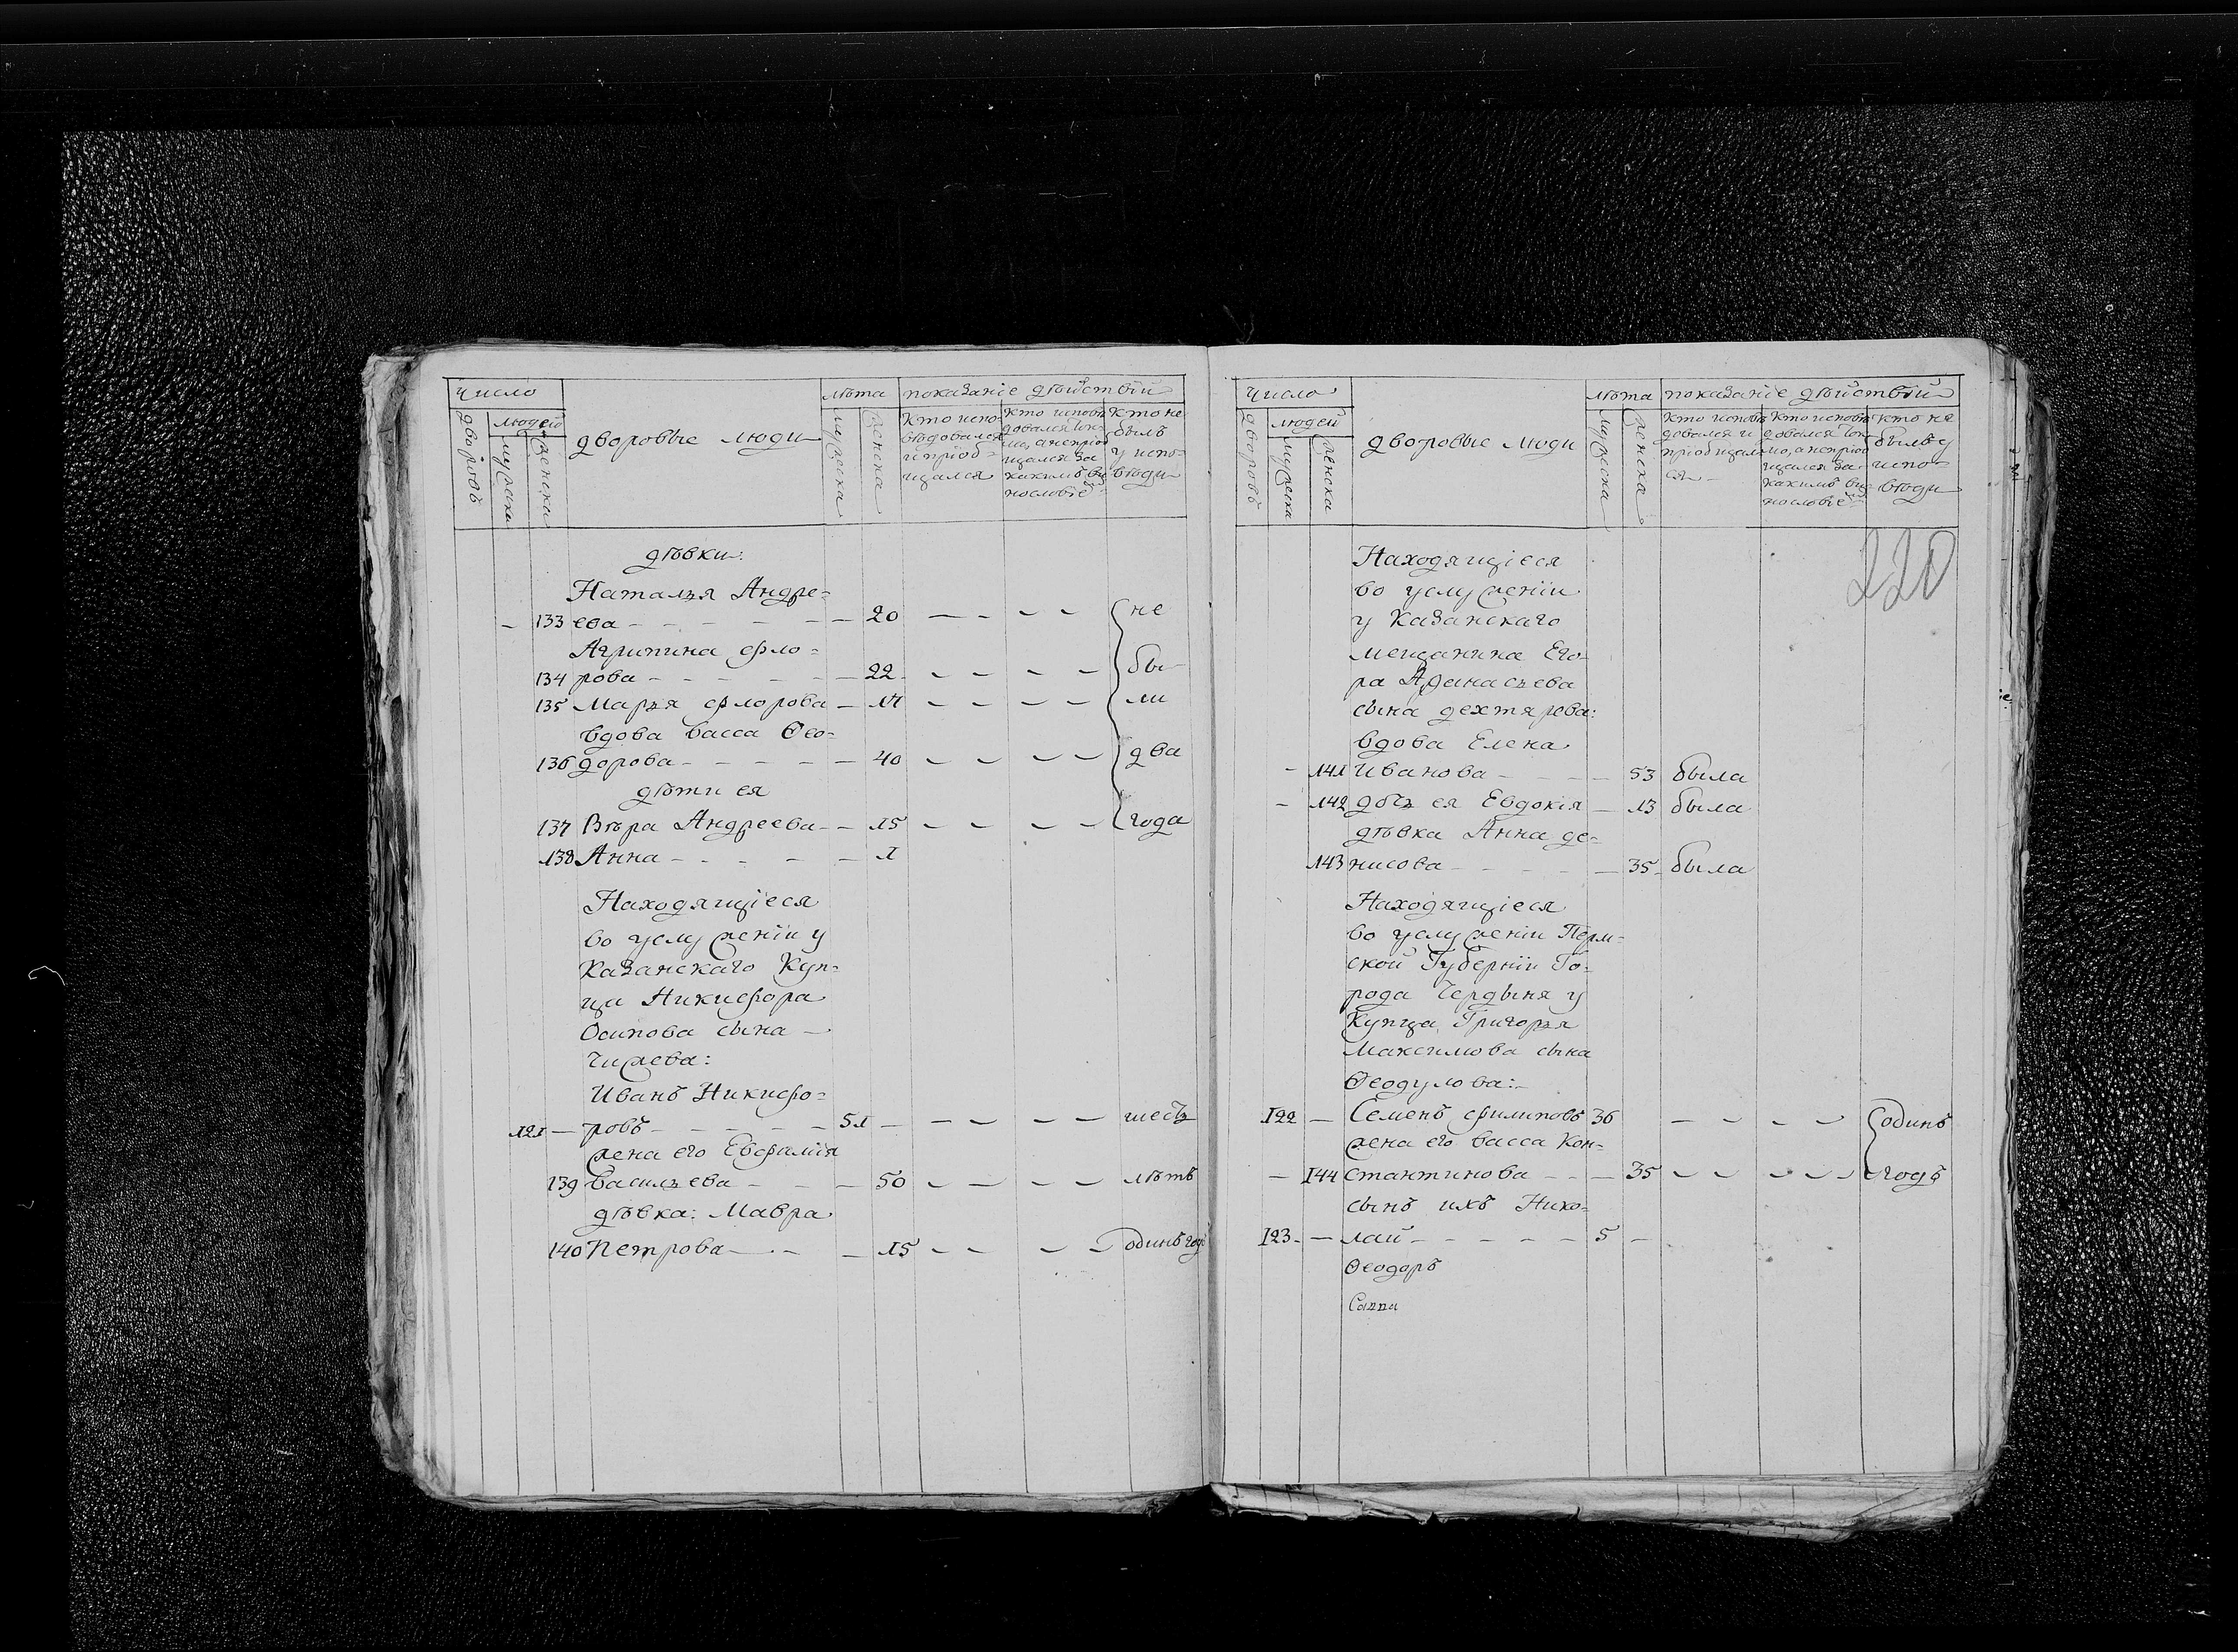 Число
лѣта показанiе дѣйствiй
дворовъ
людей
мужеска
женска
дворовые люди
мужеска
женска
Кто испо-
вѣдовался
и прiоб-
щался
Кто исповѣ
довался ток-
мо, а неприоб
щался за
какимъ ви
нословiе
Кто не
былъ
у испо-
вѣди
дѣвки:
Наталья Андре=
133 ева 20 не
Агрипина Фло=
134 рова 22 бы
135 Марья Флорова 17 ли
вдова Васса Ѳео=
136 дорова 40 два
дѣти ея
137 Вѣра Андреева 15 года
138 Анна 1
Находящiеся
во услуженiи у
Казанскаго Куп=
ца Никифора
Осипова сына
Чижева:
Иванъ Никифо=
121 ровъ 51 шесть
жена его Евфимiя
139 Васильева 50 лѣтъ
дѣвка: Мавра
140 Петрова 15 одинъ годъ
Число
лѣта показанiе дѣйствiй
дворовъ
людей
мужеска
женска
дворовые люди
мужеска
женска
Кто исповѣ
довался и
прiобщал
ся
Кто исповѣ
довался ток
мо, а неприоб
щался за
какимъ ви
нословiе
Кто не
былъ у
испо-
вѣди
220
Находящiеся
во услуженiи
у Казанскаго
мещанина Его
ра Афанасьева
сына дехтярева:
вдова Елена
141 Иванова 53 была
142 дочь ея Евдокiя 13 была
дѣвка Анна де=
143 нисова 35 была
Находящiеся
во услуженiи Перм=
ской Губернiи Го=
рода Чердыня у
Купца Григорья
Максимова сына
Ѳеодулова:
122 Семенъ Филиповъ 36 одинъ
жена его Васса Кон=
144 стантинова 35 годъ
сынъ ихъ Нико=
123 лай 5
Ѳеодоръ